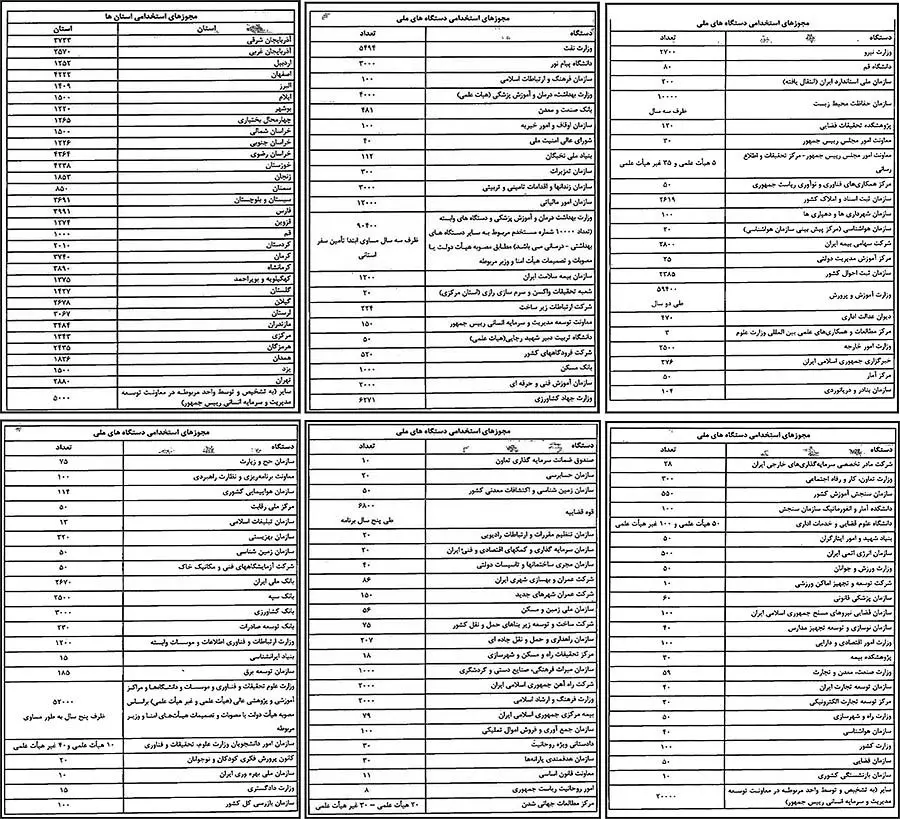 مجوزهای استخدامی دستگاه های ملی
دستگاه تعداد
وزارت نیرو ۲۷۰۰
دانشگاه قم ۸۰
سازمان ملی استاندارد ایران (انتقال یافته) ۲۰۰
سازمان حفاظت محیط زیست ۱۰۰۰۰
ظرف سه سال
پژوهشکده تحقیقات فضایی ۱۲۰
معاونت امور مجلس رییس جمهور ۳۰
معاونت امور مجلس رییس جمهور- مرکز تحقیقات و اطلاع رسانی ۵ هیأت علمی و ۳۵ غیر هیأت علمی
مرکز همکاری‌های فناوری و نوآوری ریاست جمهوری ۵۰
سازمان ثبت اسناد و املاک کشور ۲۶۱۹
سازمان شهرداری ها و دهیاری ها ۱۰۰
سازمان هواشناسی (مرکز پیش بینی سازمان هواشناسی) ۲۰
شرکت سهامی بیمه ایران ۲۸۰۰
مرکز آموزش مدیریت دولتی ۲۵
سازمان ثبت احوال کشور ۲۳۸۵
وزارت آموزش و پرورش ۵۹۴۰۰
طی دو سال
دیوان عدالت اداری ۴۷۰
مرکز مطالعات و همکاری‌های علمی بین المللی وزارت علوم ۳
وزارت امور خارجه ۲۵۰۰
خبرگزاری جمهوری اسلامی ایران ۲۷۶
مرکز آمار ۵۰
سازمان بنادر و دریانوردی ۱۰۴
مجوزهای استخدامی دستگاه های ملی
دستگاه تعداد
وزارت نفت ۵۴۹۴
دانشگاه پیام نور ۳۰۰۰
سازمان فرهنگ و ارتباطات اسلامی ۱۰۰
وزارت بهداشت، درمان و آموزش پزشکی (هیات علمی) ۴۰۰۰
بانک صنعت و معدن ۴۸۱
سازمان اوقاف و امور خیریه ۱۰۰
شورای عالی امنیت ملی ۴۰
بنیاد ملی نخبگان ۱۱۲
سازمان تعزیرات ۳۰۰
سازمان زندانها و اقدامات تامینی و تربیتی ۳۰۰۰
سازمان امور مالیاتی ۱۲۰۰۰
وزارت بهداشت درمان و آموزش پزشکی و دستگاه های وابسته ۹۰۴۰۰
(تعداد ۱۰۰۰۰ شماره مستخدم مربوط به سایر دستگاه های ظرف سه سال مساوی ابتدا تأمین سفر
بهداشتی - درمانی می باشد) مطابق مصوبه هیأت دولت یا استانی
مصوبات و تصمیمات هیأت امنا و وزیر مربوطه
سازمان بیمه سلامت ایران ۱۲۰۰
شعبه تحقیقات واکسن و سرم سازی رازی (استان مرکزی) ۲۰
شرکت ارتباطات زیر ساخت ۲۲۴
معاونت توسعه مدیریت و سرمایه انسانی رییس جمهور ۱۵۰
دانشگاه تربیت دبیر شهید رجایی(هیات علمی) ۵۰
شرکت فرودگاههای کشور ۵۲۰
بانک مسکن ۱۰۰۰
سازمان آموزش فنی و حرفه ای ۲۰۰۰
وزارت جهاد کشاورزی ۶۲۷۱
مجوزهای استخدامی استان ها
استان استان
آذربایجان شرقی ۳۷۳۳
آذربایجان غربی ۳۵۷۰
اردبیل ۱۲۵۲
اصفهان ۴۲۲۲
البرز ۱۴۰۹
ایلام ۱۵۰۰
بوشهر ۱۲۲۰
چهارمحال بختیاری ۱۲۶۵
خراسان شمالی ۱۵۰۰
خراسان جنوبی ۱۲۲۶
خراسان رضوی ۴۳۶۴
خوزستان ۴۲۳۸
زنجان ۱۸۵۳
سمنان ۸۵۰
سیستان و بلوچستان ۲۶۹۱
فارس ۳۹۹۱
قزوین ۱۲۷۴
قم ۱۰۰۰
کردستان ۲۰۱۰
کرمان ۳۷۴۰
کرمانشاه ۳۸۹۰
کهگیلویه و بویراحمد ۱۳۷۵
گلستان ۱۴۲۷
گیلان ۲۶۷۸
لرستان ۳۰۶۷
مازندران ۳۴۸۴
مرکزی ۱۳۴۳
هرمزگان ۲۴۳۵
همدان ۱۸۳۶
یزد ۱۵۰۰
تهران ۲۸۸۰
سایر (به تشخیص و توسط واحد مربوطه در معاونت توسعه ۵۰۰۰
مدیریت و سرمایه انسانی رییس جمهور)
مجوزهای استخدامی دستگاه های ملی
دستگاه تعداد
شرکت مادر تخصصی سرمایه‌گذاری‌های خارجی ایران ۲۸
وزارت تعاون، کار و رفاه اجتماعی ۳۰۰
سازمان سنجش آموزش کشور ۵۵۰
دانشکده آمار و انفورماتیک سازمان سنجش ۱۰۰
دانشگاه علوم قضایی و خدمات اداری ۵۰ هیأت علمی و ۱۰۰ غیر هیأت علمی
بنیاد شهید و امور ایثارگران ۵۰
سازمان انرژی اتمی ایران ۵۰۰
وزارت ورزش و جوانان ۵۰
شرکت توسعه و تجهیز اماکن ورزشی ۱۰
سازمان پزشکی قانونی ۶۰
سازمان قضایی نیروهای مسلح جمهوری اسلامی ایران ۱۰۰
سازمان نوسازی و توسعه تجهیز مدارس ۴۰
وزارت امور اقتصادی و دارایی ۱۰۰
پژوهشکده بیمه ۳۰
وزارت صنعت، معدن و تجارت ۵۹
سازمان توسعه تجارت ایران ۴۰
مرکز توسعه تجارت الکترونیکی ۲۰
وزارت راه و شهرسازی ۵۰
سازمان هواشناسی ۴۰
وزارت کشور ۱۰۰
سازمان فضایی ۵۰
سازمان بازنشستگی کشوری ۱۰
سایر (به تشخیص و توسط واحد مربوطه در معاونت توسعه ۲۰۰۰۰
مدیریت و سرمایه انسانی رییس جمهور)
مجوزهای استخدامی دستگاه های ملی
دستگاه تعداد
صندوق ضمانت سرمایه گذاری تعاون ۱۰
سازمان حسابرسی ۲۰
سازمان زمین شناسی و اکتشافات معدنی کشور ۵۰
قوه قضاییه ۶۸۰۰
طی پنج سال برنامه
سازمان تنظیم مقررات و ارتباطات رادیویی ۲۰
سازمان سرمایه گذاری و کمکهای اقتصادی و فنی ایران ۲۰
سازمان مجری ساختمانها و تاسیسات دولتی ۴۰
شرکت عمران و بهسازی شهری ایران ۸۶
شرکت عمران شهرهای جدید ۱۵۰
سازمان ملی زمین و مسکن ۵۶
شرکت ساخت و توسعه زیر بناهای حمل و نقل کشور ۷۵
سازمان راهداری و حمل و نقل جاده ای ۲۰۷
مرکز تحقیقات راه و مسکن و شهرسازی ۱۸
سازمان میراث فرهنگی، صنایع دستی و گردشگری ۱۰۰۰
شرکت راه آهن جمهوری اسلامی ایران ۲۰۰۰
وزارت فرهنگ و ارشاد اسلامی ۲۰۰۰
بیمه مرکزی جمهوری اسلامی ایران ۷۹
سازمان جمع آوری و فروش اموال تملیکی ۱۰۰
دادستانی ویژه روحانیت ۳۰
سازمان هدفمندی یارانه‌ها ۳۰
معاونت قانون اساسی ۱۱
امور روحانیت ریاست جمهوری ۸
مرکز مطالعات جهانی شدن ۲۰ هیأت علمی – ۳۰ غیر هیأت علمی
مجوزهای استخدامی دستگاه های ملی
دستگاه تعداد
سازمان حج و زیارت ۷۵
معاونت برنامه‌ریزی و نظارت راهبردی ۱۰۰
سازمان هواپیمایی کشوری ۱۱۴
مرکز ملی رقابت ۵۰
سازمان تبلیغات اسلامی ۱۳
سازمان بهزیستی ۳۲۰
سازمان زمین شناسی ۵۰
شرکت آزمایشگاههای فنی و مکانیک خاک ۵۰
بانک ملی ایران ۲۶۷۰
بانک سپه ۲۵۰۰
بانک کشاورزی ۳۰۰۰
بانک توسعه صادرات ۲۳۰
وزارت ارتباطات و فناوری اطلاعات و موسسات وابسته ۱۲۰۰
بنیاد ایرانشناسی ۱۵
سازمان توسعه برق ۱۸۵
وزارت علوم تحقیقات و فناوری و موسسات و دانشگاهها و مراکز
آموزشی و پژوهشی عالی (هیأت علمی و غیر هیأت علمی) براساس ۵۲۰۰۰
مصوبه هیأت دولت با مصوبات و تصمیمات هیأت‌های امنا و وزیر ظرف پنج سال به طور مساوی
مربوطه
سازمان امور دانشجویان وزارت علوم، تحقیقات و فناوری ۱۰ هیأت علمی و ۴۰ غیر هیأت علمی
کانون پرورش فکری کودکان و نوجوانان ۲۰
سازمان ملی بهره وری ایران ۱۰
وزارت دادگستری ۱۵
سازمان بازرسی کل کشور ۱۰۰